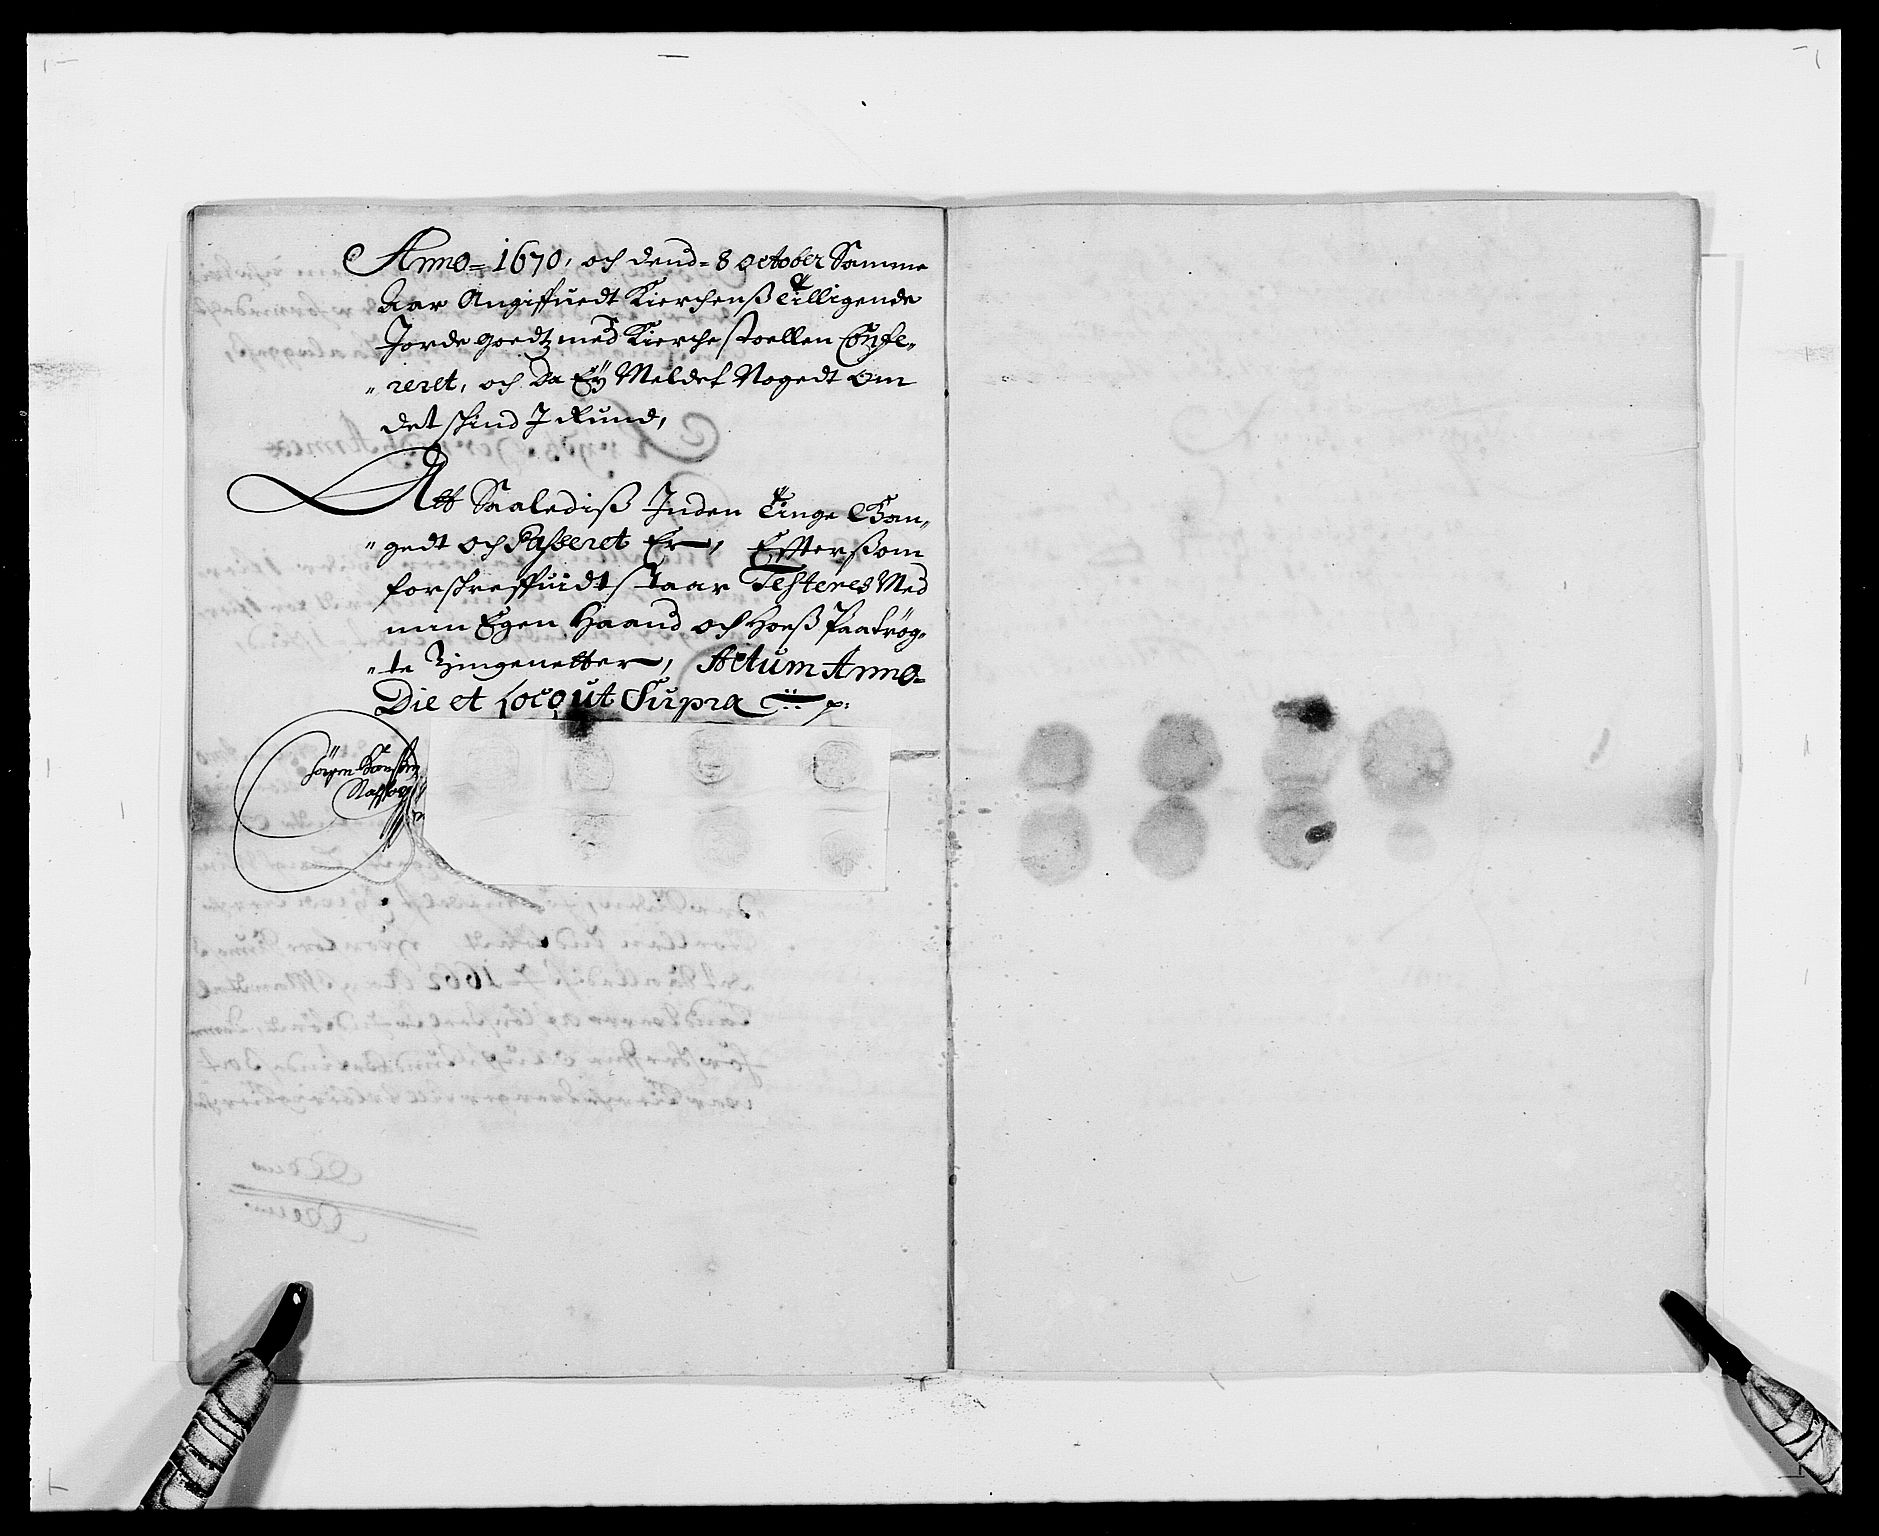 Anno= 1670, och dend= 8 October Samme
Aar Angiffuedt Kierchenß Tilligende
Jorde goedtz med Kierchestoellen Confe„
„reret, och da Eÿ Meldet Nogedt Om
det skind J Kund,
Att Saalediß Inden Tinge Gan„
„gedt och Passeret Er, Efftersom
forskreffuidt staar Testeres Med
min Egen Haand och hoeß Paatrög„
„te Zingenetter, Actum Anno
Die et Loco ut Supra
Sörren